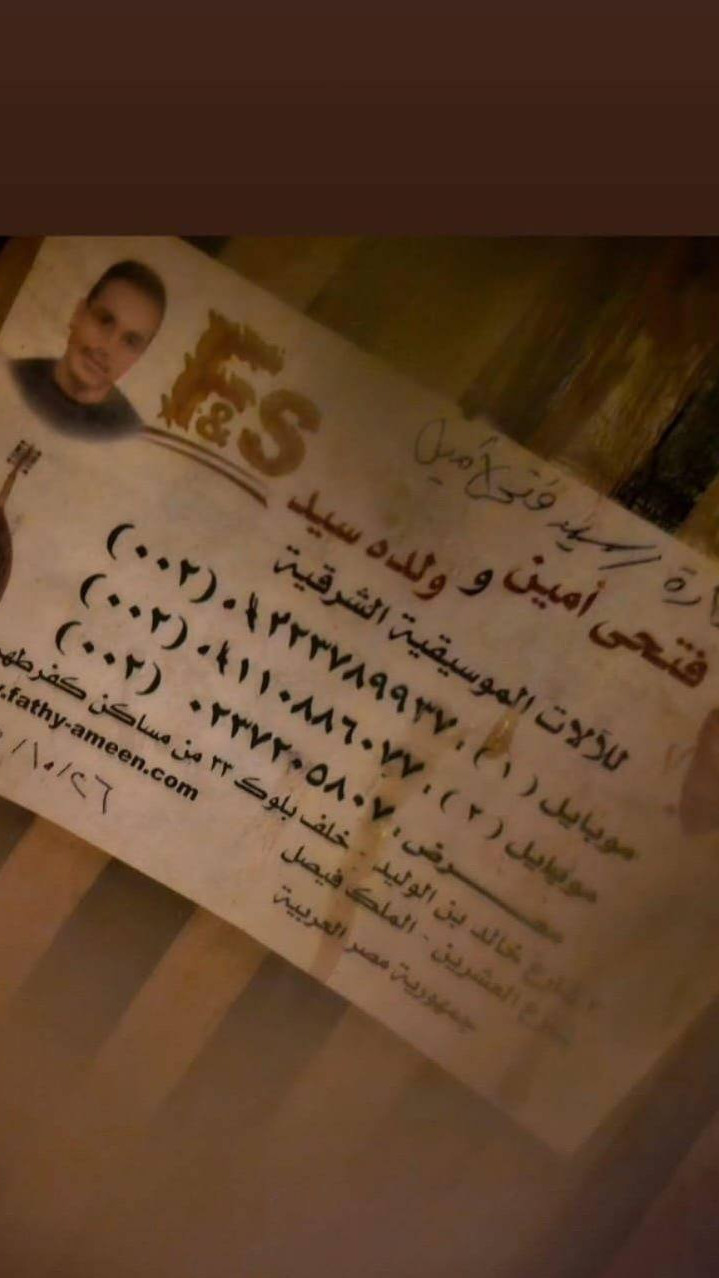 F&S
سيد فتحى أمين
فتحى أمين و ولده سيد
للآلات الموسيقية الشرقية
موبايل (١) : ٠١٢٢٣٧٨٩٩٣٧ (٠٠٢)
موبايل (٢) : ٠١١١٠٨٨٦٠٧٧ (٠٠٢)
معرض : ٠٢٣٧٢٠٥٨٠٧ (٠٠٢)
شارع خالد بن الوليد - خلف بلوك ٣٣ من مساكن كفرطهر
شارع العشرين - الملك فيصل
جمهورية مصر العربية
.fathy-ameen.com
/١٠/٢٦